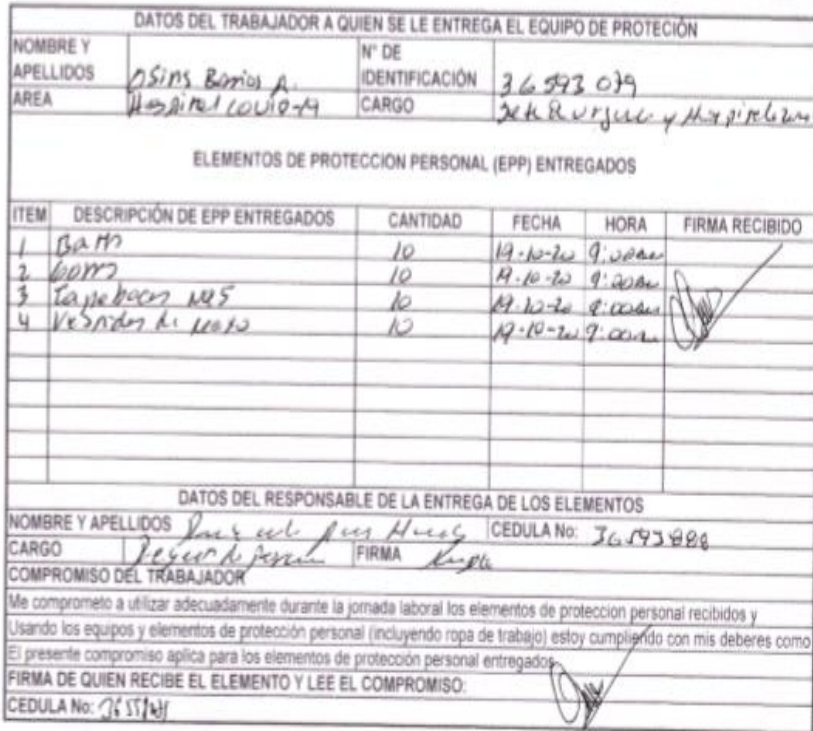 DATOS DEL TRABAJADOR A QUIEN SE LE ENTREGA EL EQUIPO DE PROTECIÓN
NOMBRE Y APELLIDOS Barrios A. N° DE IDENTIFICACIÓN 36593039
AREA Hospital COVID-19 CARGO y
ELEMENTOS DE PROTECCION PERSONAL (EPP) ENTREGADOS
ITEM DESCRIPCIÓN DE EPP ENTREGADOS CANTIDAD FECHA HORA FIRMA RECIBIDO
1 10 19-10-20 9:00am
2 10 19-10-20 9:00am
3 Tapabocas N95 10 19-10-20 9:00am
4 Vestidos de 10 19-10-20 9:00am
DATOS DEL RESPONSABLE DE LA ENTREGA DE LOS ELEMENTOS
NOMBRE Y APELLIDOS CEDULA No: 36593888
CARGO FIRMA
COMPROMISO DEL TRABAJADOR
Me comprometo a utilizar adecuadamente durante la jornada laboral los elementos de proteccion personal recibidos y
Usando los equipos y elementos de protección personal (incluyendo ropa de trabajo) estoy cumpliendo con mis deberes como
El presente compromiso aplica para los elementos de protección personal entregados
FIRMA DE QUIEN RECIBE EL ELEMENTO Y LEE EL COMPROMISO:
CEDULA No: